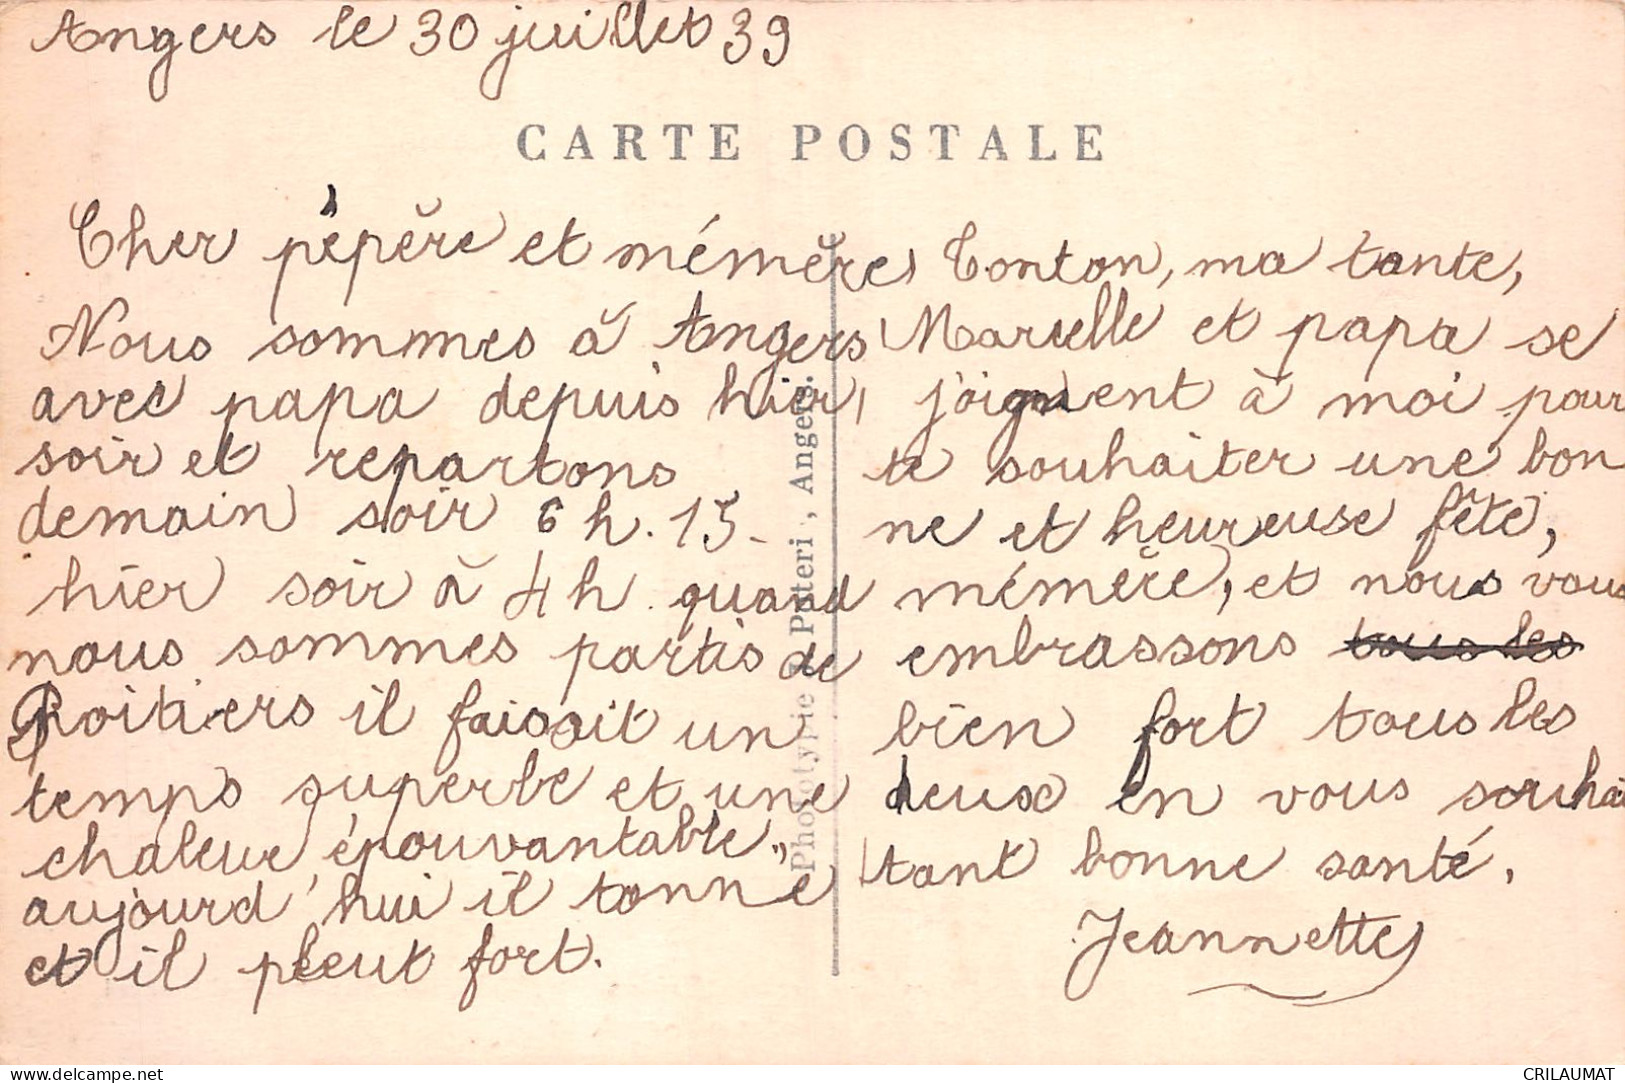 Angers le 30 juillet 39
CARTE POSTALE
Cher pépère et mémère
Nous sommes à Angers
avec papa depuis hier
soir et repartons
demain soir 6 h. 15-
hier soir à 4 h. quand
nous sommes partis de
Poitiers il faisait un
temps superbe et une
chaleur épouvantable,
aujourd'hui il tonne
et il pleut fort.
Tonton, ma tante,
Marcelle et papa se
joignent à moi pour
te souhaiter une bon
ne et heureuse fête,
mémère, et nous vous
embrassons tous les
bien fort tous les
deux en vous souhai
tant bonne santé.
Jeannette
Phototypie J Patteri, Angers.
CRILAUMAT
www.delcampe.net